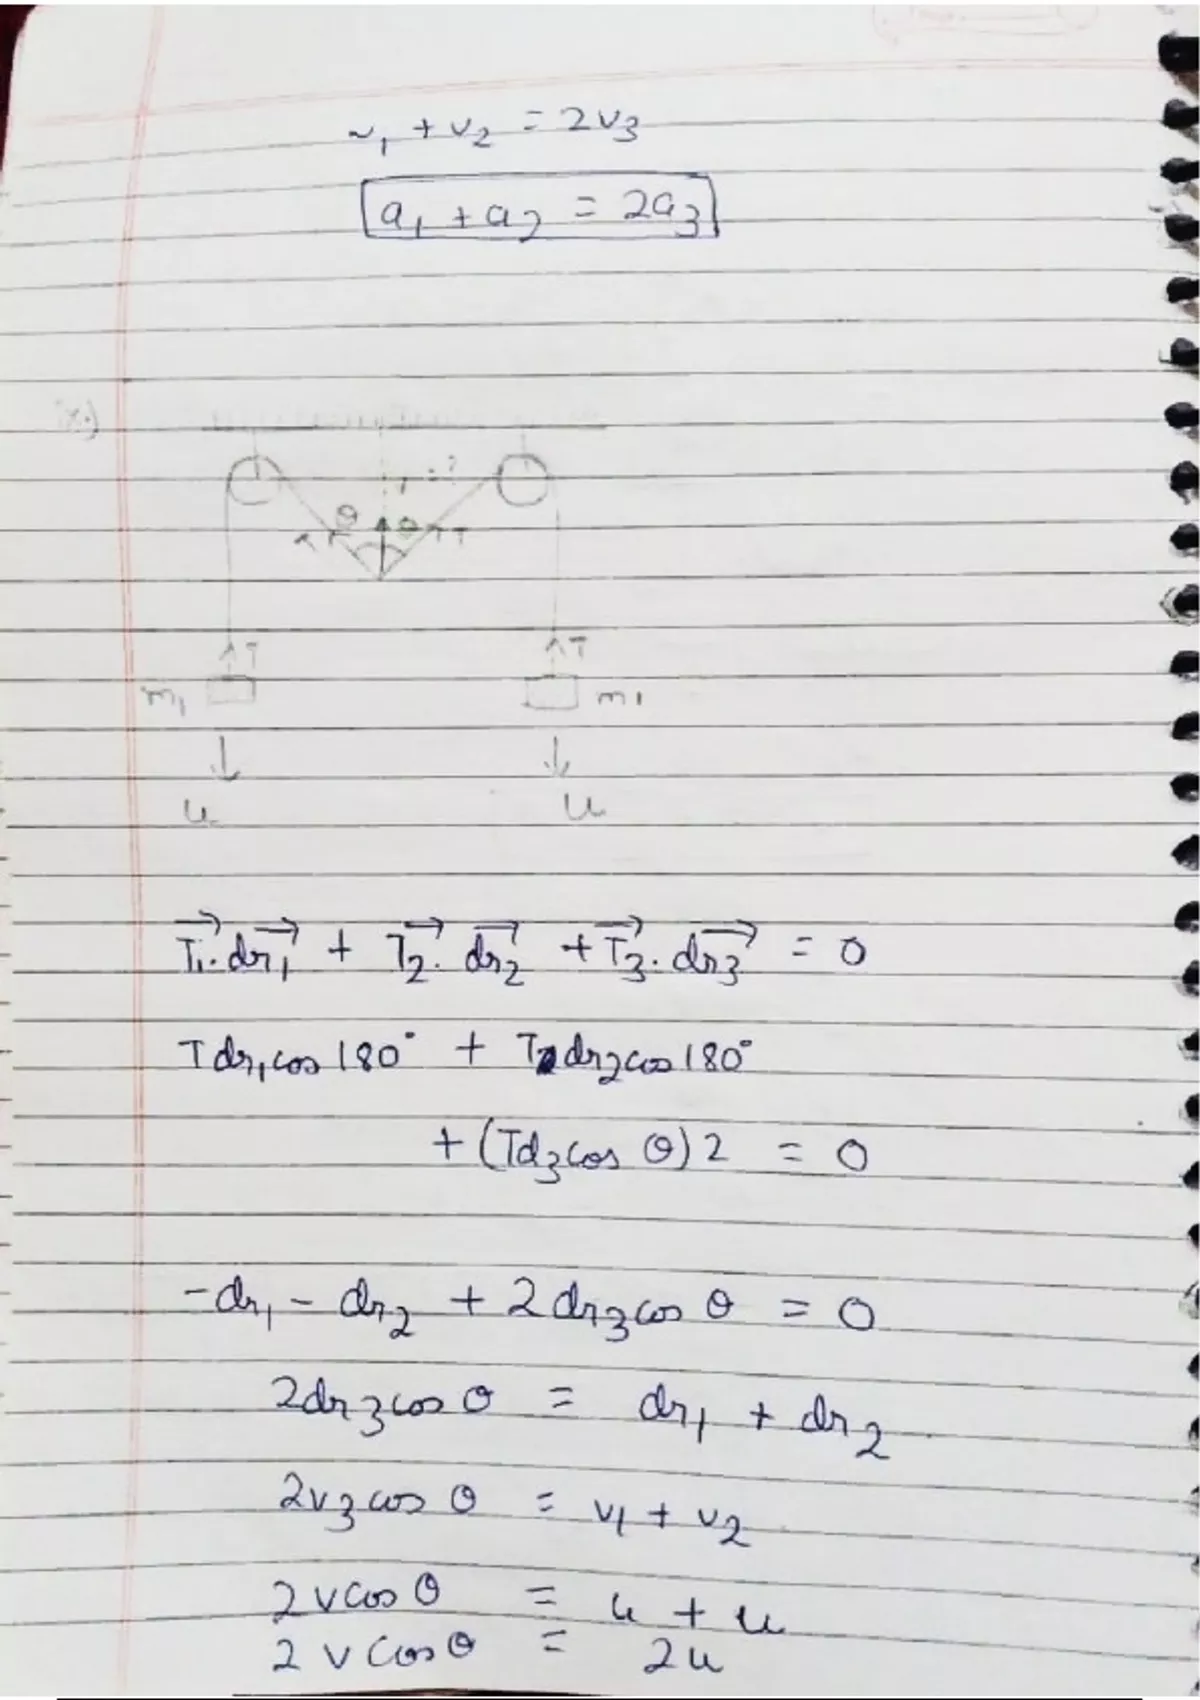 v₁ + v₂ = 2v₃
a₁ + a₂ = 2a₃
x.)
v = ?
θ θ
T T
T T
m₁ m₁
u u
T₁⃗.dr₁⃗ + T₂⃗.dr₂⃗ + T₃⃗.dr₃⃗ = 0
T dr₁cos 180° + T dr₂cos 180°
+ (Td₃cos θ) 2 = 0
-dr₁ - dr₂ + 2dr₃cos θ = 0
2dr₃cos θ = dr₁ + dr₂
2v₃cos θ = v₁ + v₂
2 vcos θ = u + u
2 v cos θ = 2u